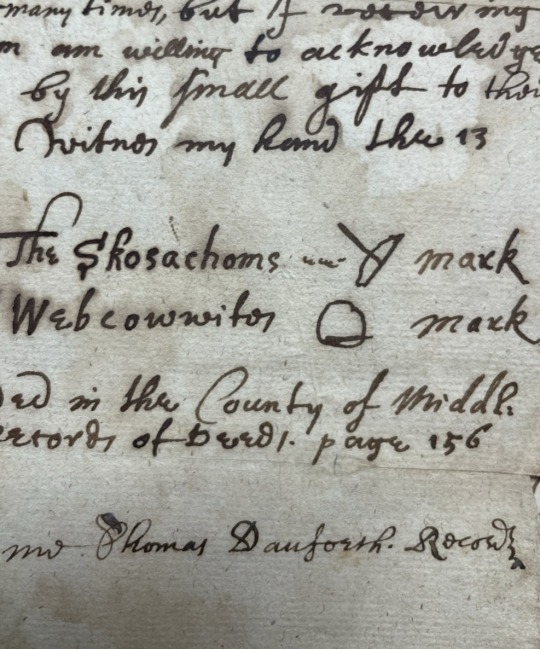 many times, but I receiving
am willing to acknowledge
by this small gift to thei
Witnes my hand the 13
The Skosachoms mark
Webcowwites mark
ed in the County of Middl:
ecords of Deeds. page 156
me Thomas Danforth. Record